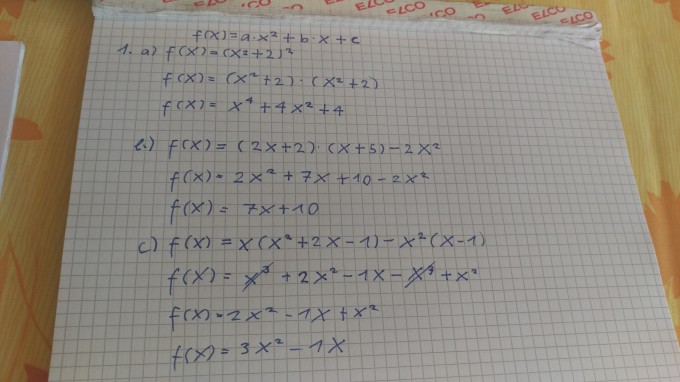 ELCO ELCO ELCO
f(x)=a·x²+b·x+c
1. a) f(x)=(x²+2)²
f(x)=(x²+2)·(x²+2)
f(x)= x⁴+4x²+4
b.) f(x)=(2x+2)·(x+5)-2x²
f(x)= 2x²+7x+10-2x²
f(x)= 7x+10
c) f(x)=x(x²+2x-1)-x²(x-1)
f(x)= x³+2x²-1x-x³+x²
f(x)=2x²-1x+x²
f(x)=3x²-1x